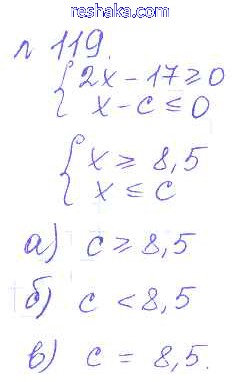 reshaka.com
№ 119.
{ 2x - 17 ≥ 0
x - c ≤ 0
{ x ≥ 8,5
x ≤ c
а) c ≥ 8,5
б) c < 8,5
в) c = 8,5.